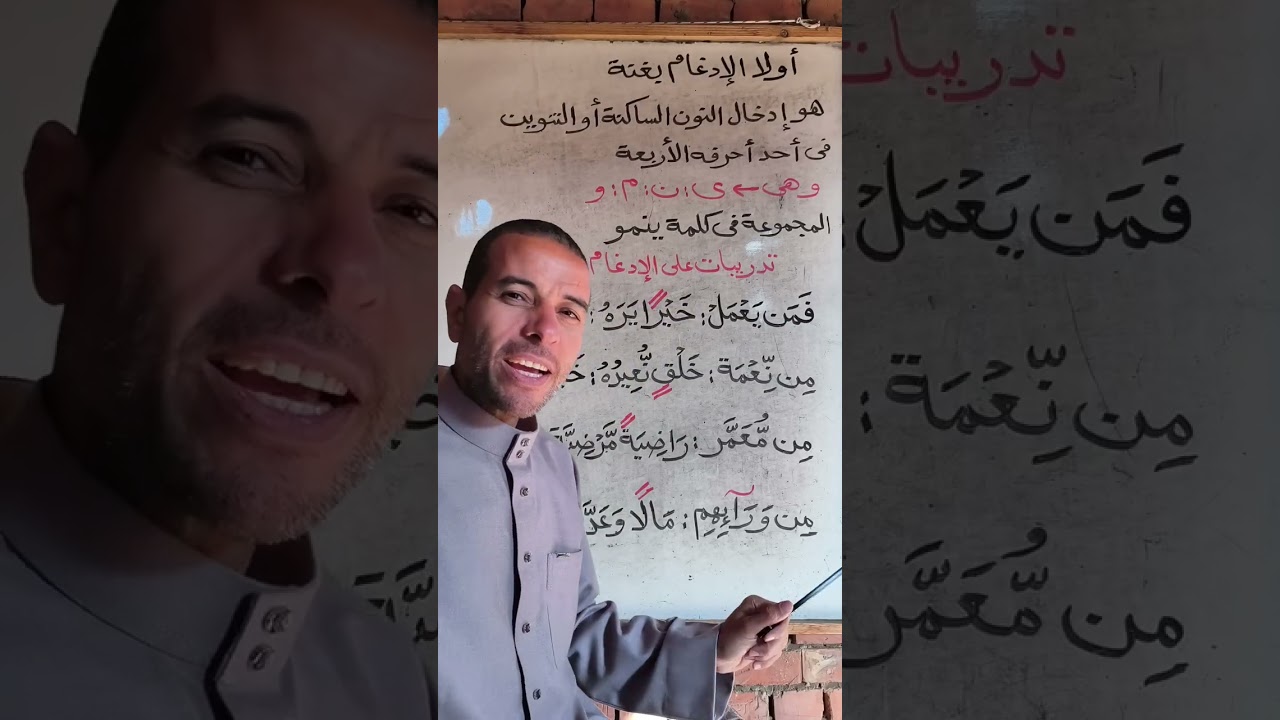 أولا الإدغام بغنة
هو إدخال النون الساكنة أو التنوين
فى أحد أحرفه الأربعة
وهى ← ى : ن : م : و
المجموعة فى كلمة ينمو
تدريبات على الإدغام
فَمَن يَعْمَلْ : خَيْرًا يَرَهُ :
مِن نِّعْمَة : خَلْقٍ نُّعِيدُهُ :
مِن مُّعَمَّر : رَاضِيَةً مَّرْضِيَّة
مِن وَرَآئِهِم : مَالًا وَعَدَّ